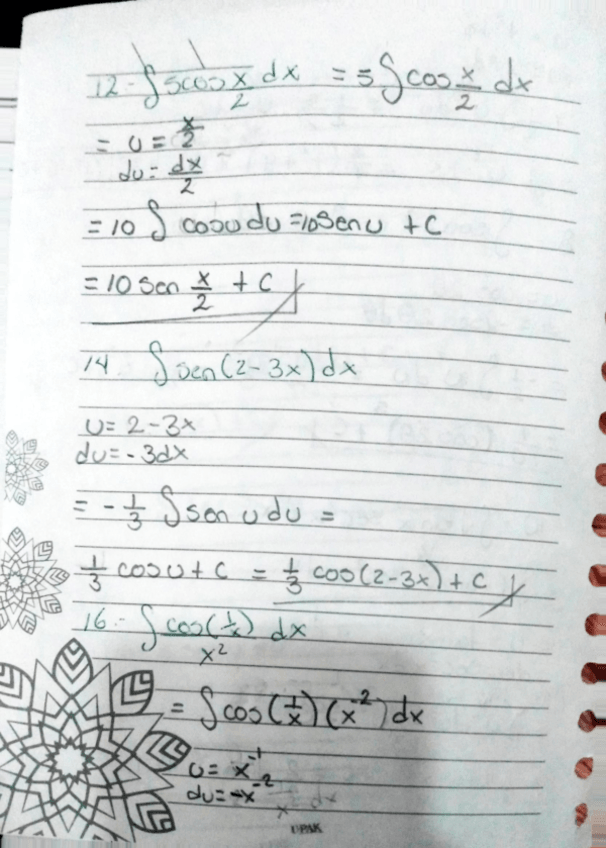 12.- ∫ 5cos x/2 dx = 5 ∫ cos x/2 dx
= u = x/2
du = dx/2
= 10 ∫ cosu du = 10senu + C
= 10 sen x/2 + C
14 ∫ sen(2-3x) dx
u = 2-3x
du = -3dx
= -1/3 ∫ sen u du =
1/3 cosu + C = 1/3 cos(2-3x) + C
16.- ∫ cos(1/x)/x² dx
= ∫ cos(1/x) (x⁻²) dx
u = x⁻¹
du = -x⁻²